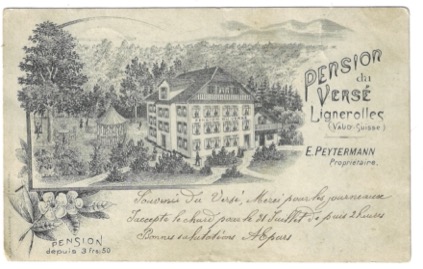 PENSION
du
VERSÉ
Lignerolles
(Vaud-Suisse)
E. PEYTERMANN
Propriétaire.
Souvenir du Versé, Merci pour les journeaux
J'accepte le chard pour le 21 Juillet depuis 2 heures
Bonnes salutations
PENSION
depuis 3 frs. 50